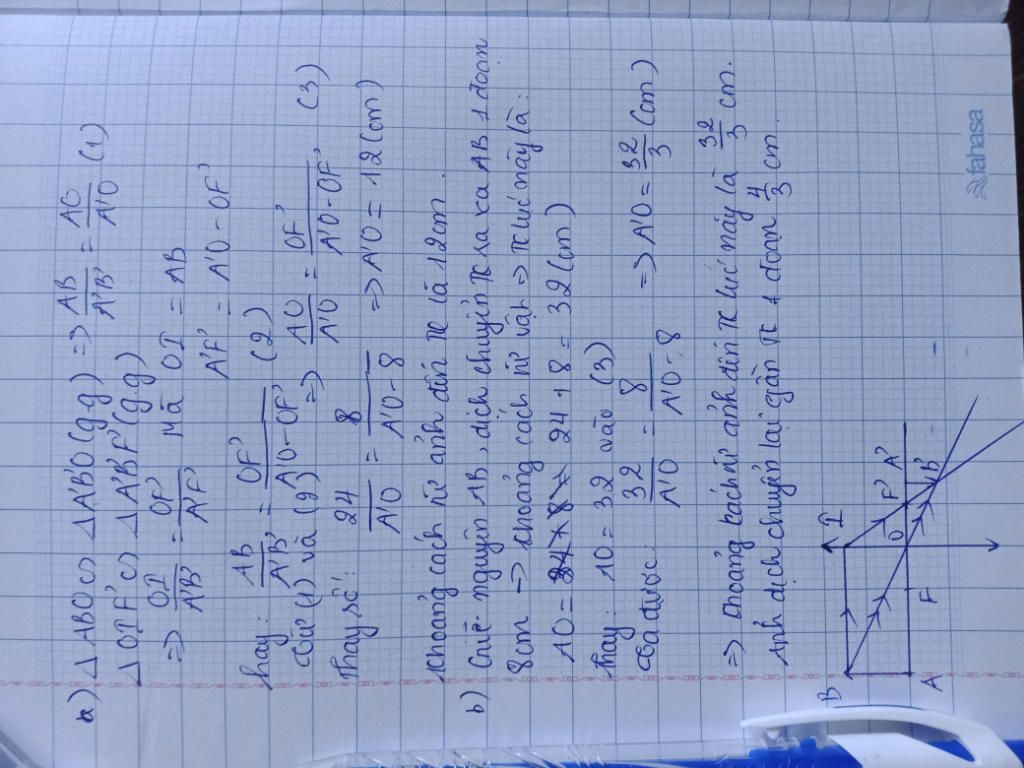 a) Δ ABO ∽ Δ A'B'O (g.g) => AB/A'B' = AO/A'O (1)
Δ OIF' ∽ Δ A'B'F' (g.g)
=> OI/A'B' = OF'/A'F' Mà OI = AB
A'F' = A'O - OF'
hay: AB/A'B' = OF'/A'O-OF' (2)
Từ (1) và (2) => AO/A'O = OF'/A'O-OF' (3)
Thay số: 24/A'O = 8/A'O-8 => A'O = 12 (cm)
Khoảng cách từ ảnh đến TK là 12cm.
b) Giữ nguyên AB, dịch chuyển TK ra xa AB 1 đoạn
8cm -> khoảng cách từ vật -> TK lúc này là:
AO = 24 + 8 = 32 (cm)
Thay: AO = 32 vào (3)
Ta được: 32/A'O = 8/A'O-8 => A'O = 32/3 (cm)
=> Khoảng cách từ ảnh đến TK lúc này là 32/3 cm.
Ảnh dịch chuyển lại gần TK 1 đoạn 4/3 cm.
B I
O F' A'
A F B'
fahasa